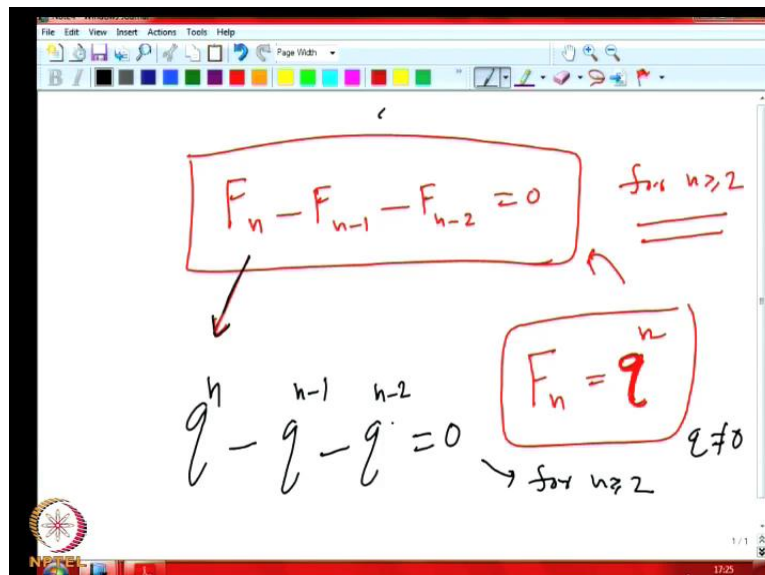 File Edit View Insert Actions Tools Help
Page Width
B I
Fₙ − Fₙ₋₁ − Fₙ₋₂ = 0
for n ≥ 2
Fₙ = qⁿ
q ≠ 0
qⁿ − qⁿ⁻¹ − qⁿ⁻² = 0
for n ≥ 2
1 / 1
NPTEL
17:25